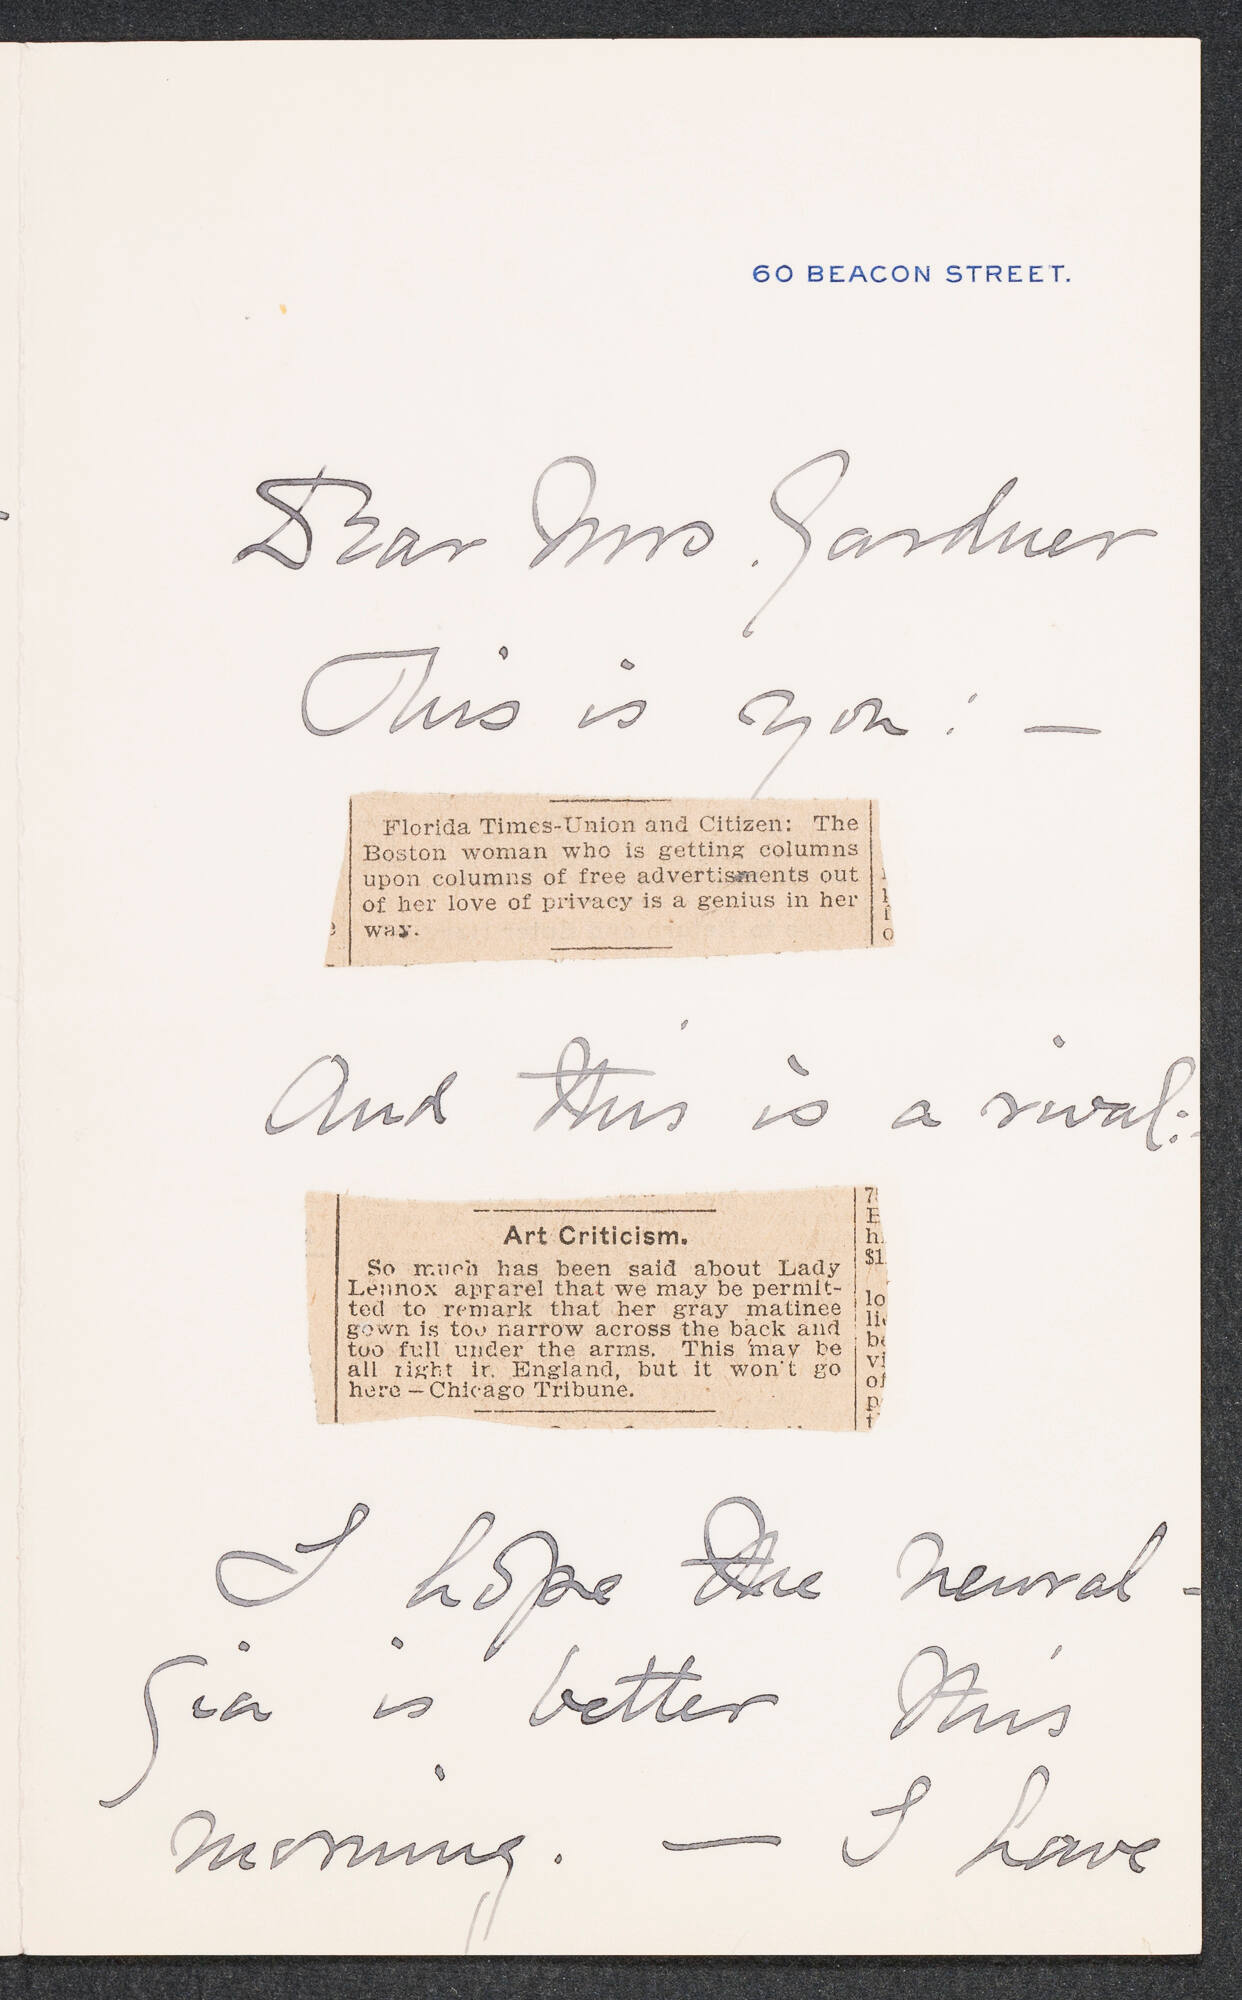 60 BEACON STREET.
Dear Mrs. Gardner
This is you: —
Florida Times-Union and Citizen: The
Boston woman who is getting columns
upon columns of free advertisments out
of her love of privacy is a genius in her
way.
And this is a rival:
Art Criticism.
So much has been said about Lady
Lennox apparel that we may be permit-
ted to remark that her gray matinee
gown is too narrow across the back and
too full under the arms. This may be
all right in England, but it won't go
here — Chicago Tribune.
I hope the neural-
gia is better this
morning. — I have